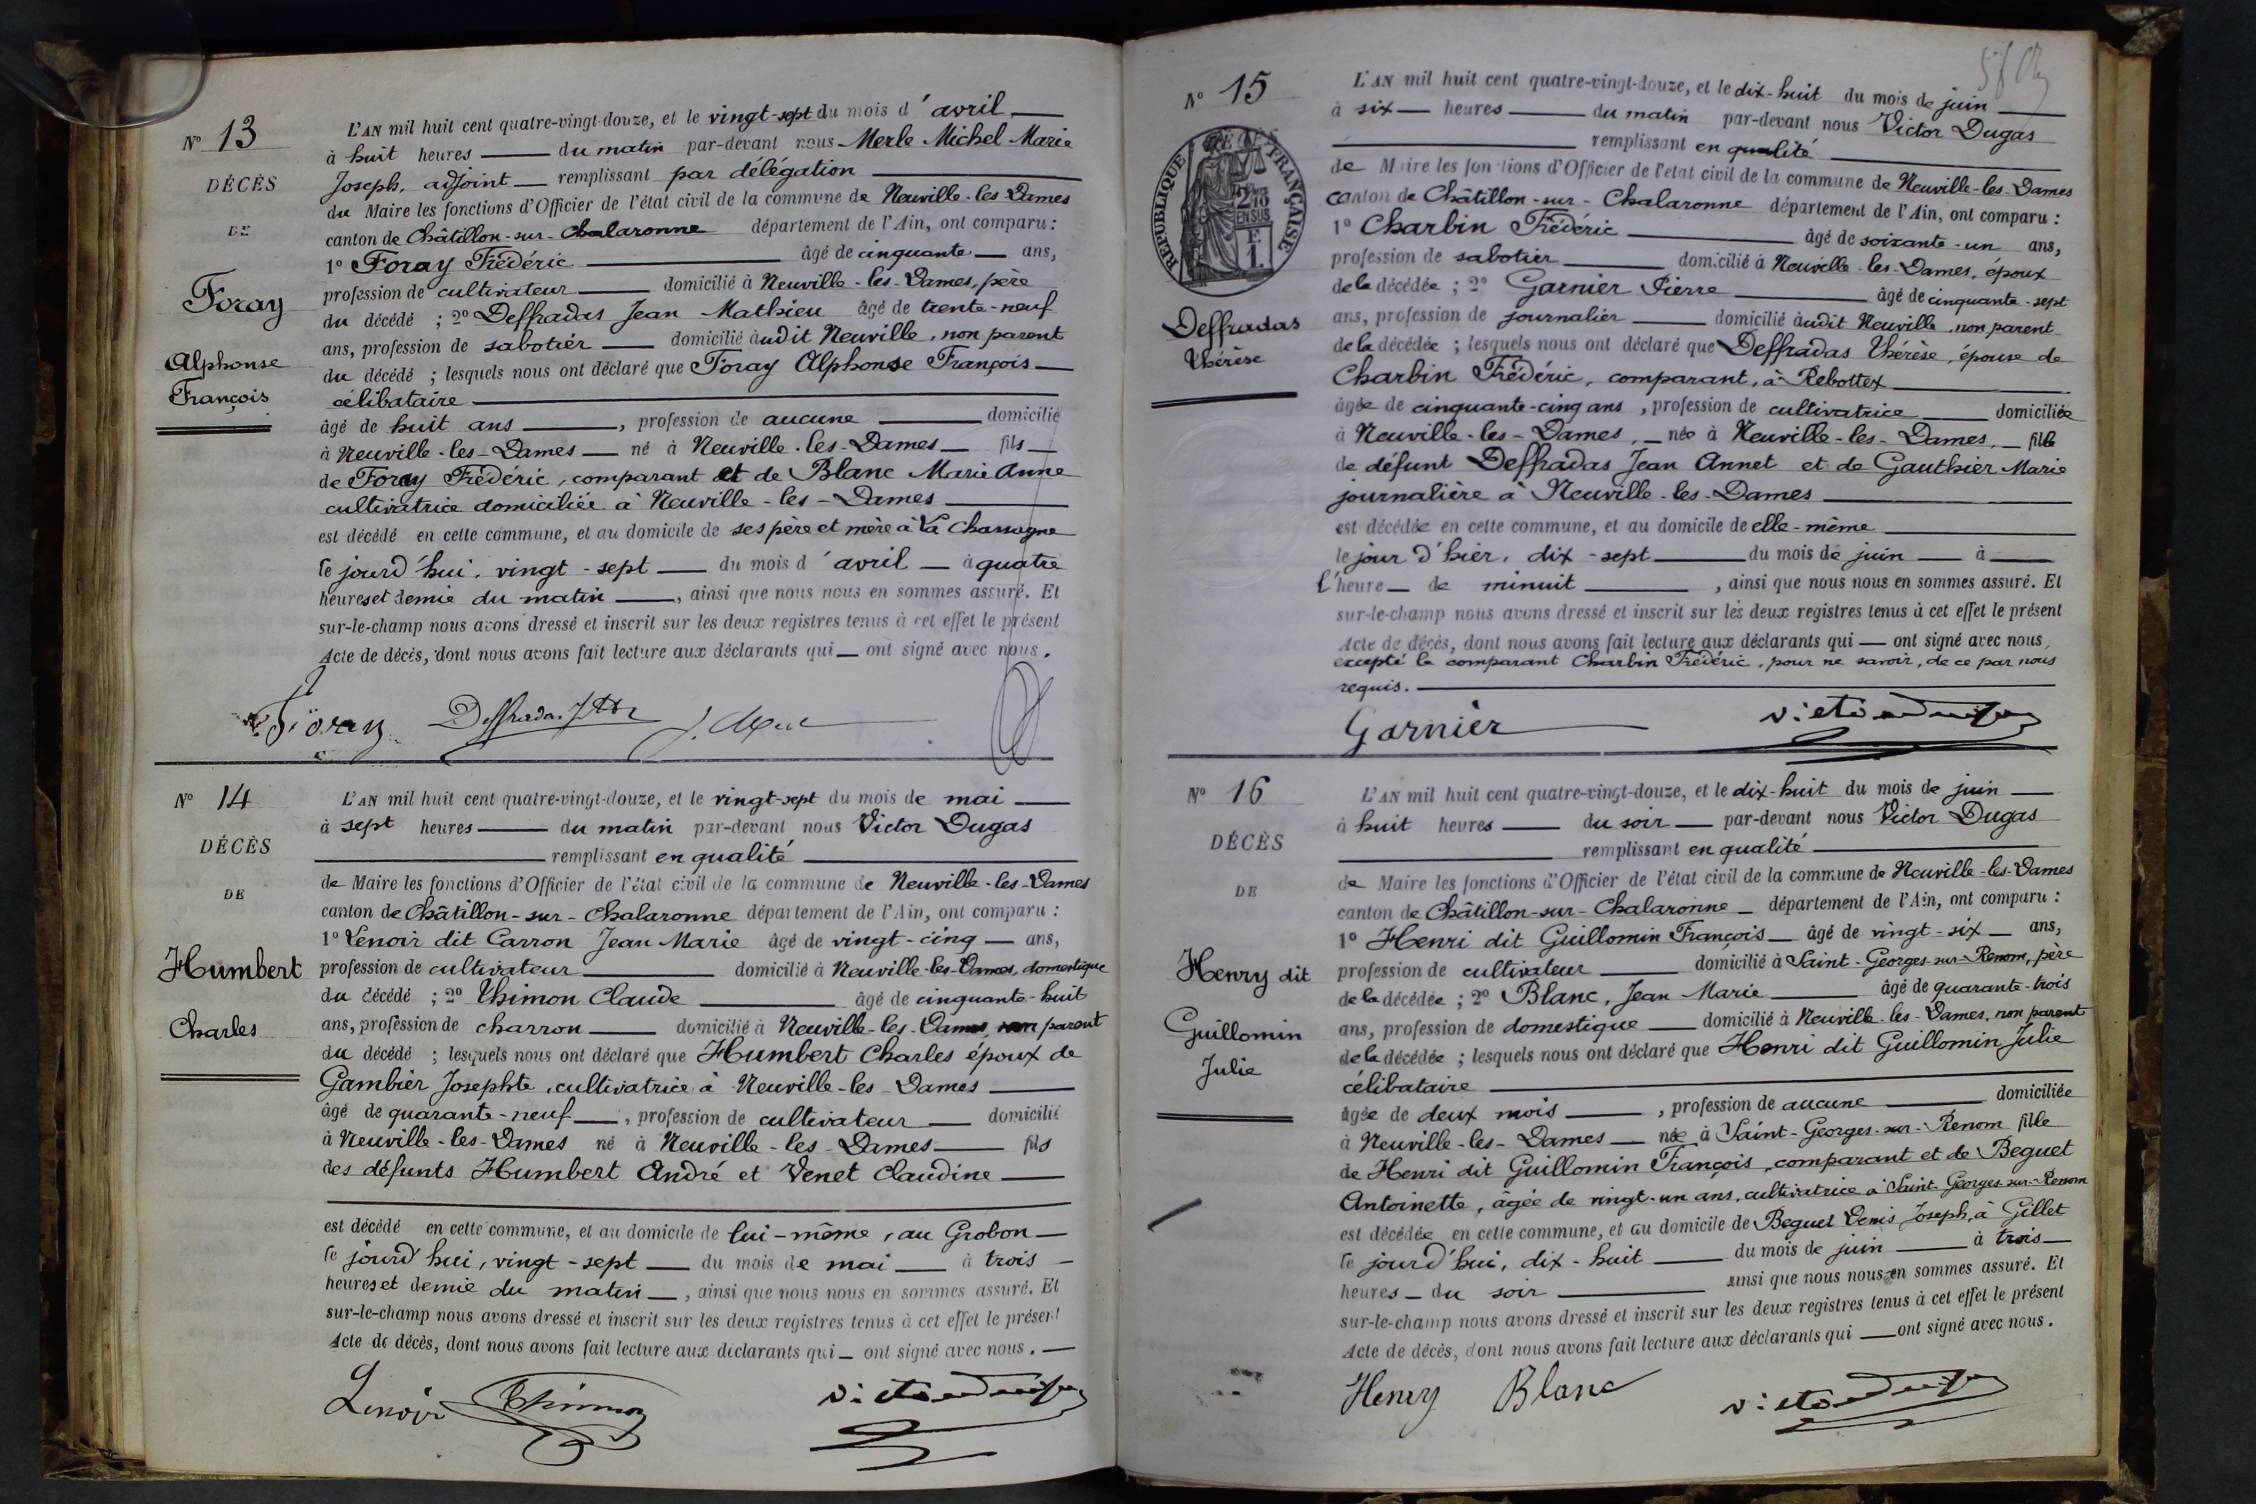 Nº 13
DÉCÈS
DE
Foray
Alphonse
François
L'AN mil huit cent quatre-vingt-douze, et le vingt-sept du mois d'avril
à huit heures du matin par-devant nous Merle Michel Marie
Joseph, adjoint remplissant par délégation
du Maire les fonctions d'Officier de l'état civil de la commune de Neuville-les-Dames
canton de Châtillon-sur-Chalaronne département de l'Ain, ont comparu :
1º Foray Frédéric âgé de cinquante ans,
profession de cultivateur domicilié à Neuville-les-Dames, père
du décédé ; 2º Deffradas Jean Mathieu âgé de trente-neuf
ans, profession de sabotier domicilié audit Neuville, non parent
du décédé ; lesquels nous ont déclaré que Foray Alphonse François
célibataire
âgé de huit ans, profession de aucune domicilié
à Neuville-les-Dames né à Neuville-les-Dames fils
de Foray Frédéric, comparant et de Blanc Marie Anne
cultivatrice domiciliée à Neuville-les-Dames
est décédé en cette commune, et au domicile de ses père et mère à La Chassagne
le jourd'hui, vingt-sept du mois d'avril à quatre
heures et demie du matin, ainsi que nous nous en sommes assuré. Et
sur-le-champ nous avons dressé et inscrit sur les deux registres tenus à cet effet le présent
Acte de décès, dont nous avons fait lecture aux déclarants qui ont signé avec nous.
Foray Deffradas
Nº 14
DÉCÈS
DE
Humbert
Charles
L'AN mil huit cent quatre-vingt-douze, et le vingt-sept du mois de mai
à sept heures du matin par-devant nous Victor Dugas
remplissant en qualité
de Maire les fonctions d'Officier de l'état civil de la commune de Neuville-les-Dames
canton de Châtillon-sur-Chalaronne département de l'Ain, ont comparu :
1º Lenoir dit Carron Jean Marie âgé de vingt-cinq ans,
profession de cultivateur domicilié à Neuville-les-Dames, domestique
du décédé ; 2º Thimon Claude âgé de cinquante-huit
ans, profession de charron domicilié à Neuville-les-Dames, non parent
du décédé ; lesquels nous ont déclaré que Humbert Charles époux de
Gambier Josephte, cultivatrice à Neuville-les-Dames
âgé de quarante-neuf, profession de cultivateur domicilié
à Neuville-les-Dames né à Neuville-les-Dames fils
des défunts Humbert André et Venet Claudine
est décédé en cette commune, et au domicile de lui-même, au Grobon
le jourd'hui, vingt-sept du mois de mai à trois
heures et demie du matin, ainsi que nous nous en sommes assuré. Et
sur-le-champ nous avons dressé et inscrit sur les deux registres tenus à cet effet le présent
Acte de décès, dont nous avons fait lecture aux déclarants qui ont signé avec nous.
Lenoir Thimon Victor Dugas
Nº 15
RÉPUBLIQUE FRANÇAISE
2/10
EN SUS
Deffradas
Thérèse
L'AN mil huit cent quatre-vingt-douze, et le dix-huit du mois de juin
à six heures du matin par-devant nous Victor Dugas
remplissant en qualité
de Maire les fonctions d'Officier de l'état civil de la commune de Neuville-les-Dames
canton de Châtillon-sur-Chalaronne département de l'Ain, ont comparu :
1º Charbin Frédéric âgé de soixante-un ans,
profession de sabotier domicilié à Neuville-les-Dames, époux
de la décédée ; 2º Garnier Pierre âgé de cinquante-sept
ans, profession de journalier domicilié audit Neuville, non parent
de la décédée ; lesquels nous ont déclaré que Deffradas Thérèse, épouse de
Charbin Frédéric, comparant, à Rebottex
âgée de cinquante-cinq ans, profession de cultivatrice domiciliée
à Neuville-les-Dames, née à Neuville-les-Dames, fille
de défunt Deffradas Jean Annet et de Gauthier Marie
journalière à Neuville-les-Dames
est décédée en cette commune, et au domicile de elle-même
le jour d'hier, dix-sept du mois de juin à
l'heure de minuit, ainsi que nous nous en sommes assuré. Et
sur-le-champ nous avons dressé et inscrit sur les deux registres tenus à cet effet le présent
Acte de décès, dont nous avons fait lecture aux déclarants qui ont signé avec nous,
excepté le comparant Charbin Frédéric, pour ne savoir, de ce par nous
requis.
Garnier Victor Dugas
Nº 16
DÉCÈS
DE
Henry dit
Guillomin
Julie
L'AN mil huit cent quatre-vingt-douze, et le dix-huit du mois de juin
à huit heures du soir par-devant nous Victor Dugas
remplissant en qualité
de Maire les fonctions d'Officier de l'état civil de la commune de Neuville-les-Dames
canton de Châtillon-sur-Chalaronne département de l'Ain, ont comparu :
1º Henri dit Guillomin François âgé de vingt-six ans,
profession de cultivateur domicilié à Saint-Georges-sur-Renom, père
de la décédée ; 2º Blanc, Jean Marie âgé de quarante-trois
ans, profession de domestique domicilié à Neuville-les-Dames, non parent
de la décédée ; lesquels nous ont déclaré que Henri dit Guillomin Julie
célibataire
âgée de deux mois, profession de aucune domiciliée
à Neuville-les-Dames née à Saint-Georges-sur-Renom fille
de Henri dit Guillomin François, comparant et de Beguet
Antoinette, âgée de vingt-un ans, cultivatrice à Saint-Georges-sur-Renom
est décédée en cette commune, et au domicile de Beguet Denis Joseph, à Gillet
le jourd'hui, dix-huit du mois de juin à trois
heures du soir ainsi que nous nous en sommes assuré. Et
sur-le-champ nous avons dressé et inscrit sur les deux registres tenus à cet effet le présent
Acte de décès, dont nous avons fait lecture aux déclarants qui ont signé avec nous.
Henry Blanc Victor Dugas